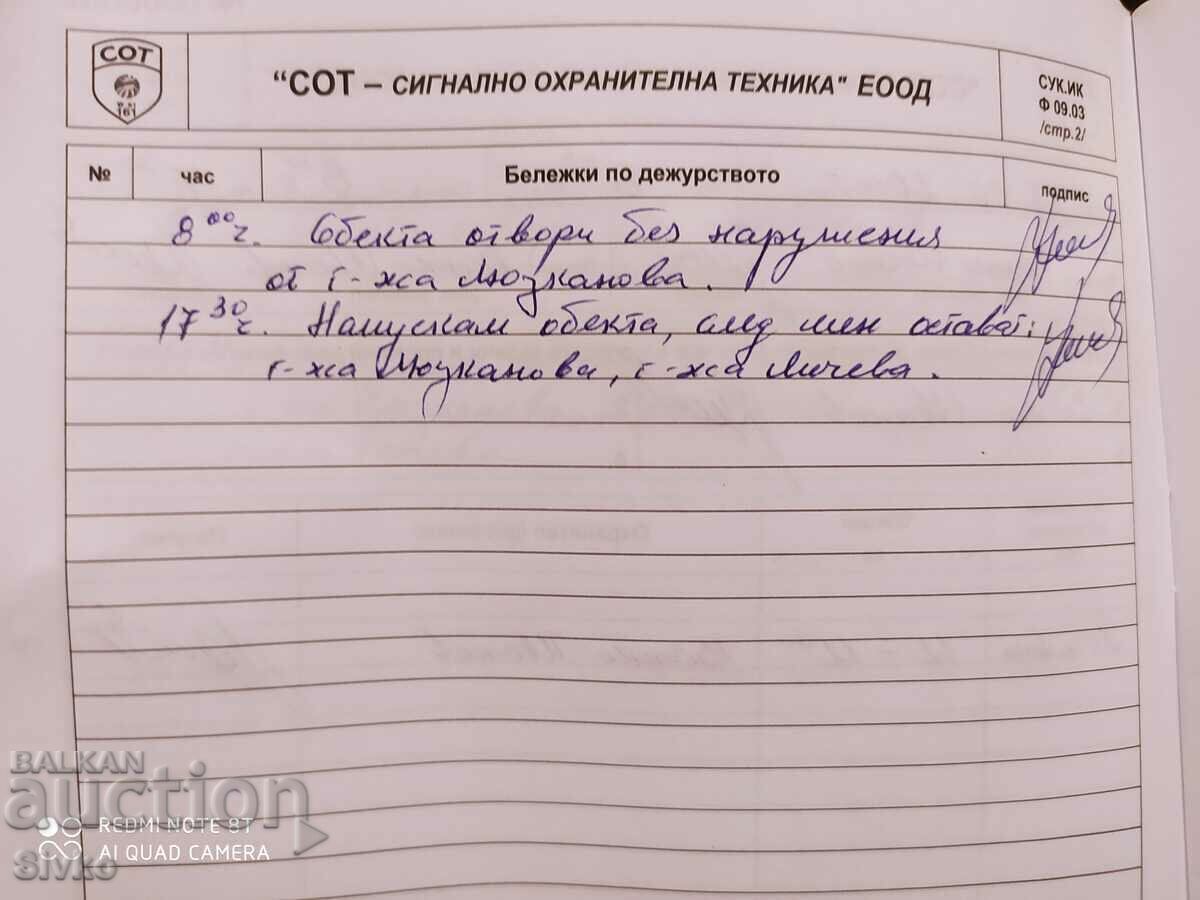 СОТ
161
"СОТ – СИГНАЛНО ОХРАНИТЕЛНА ТЕХНИКА" ЕООД
СУК.ИК
Ф 09.03
/стр.2/
№ час Бележки по дежурството подпис
8 00 ч. Обекта отвори без нарушения
от г-жа Мюзканова.
17 30 ч. Напускам обекта, след мен остават:
г-жа Мюзканова, г-жа Личева.
BALKAN
auction
REDMI NOTE 8T
AI QUAD CAMERA
Sivko